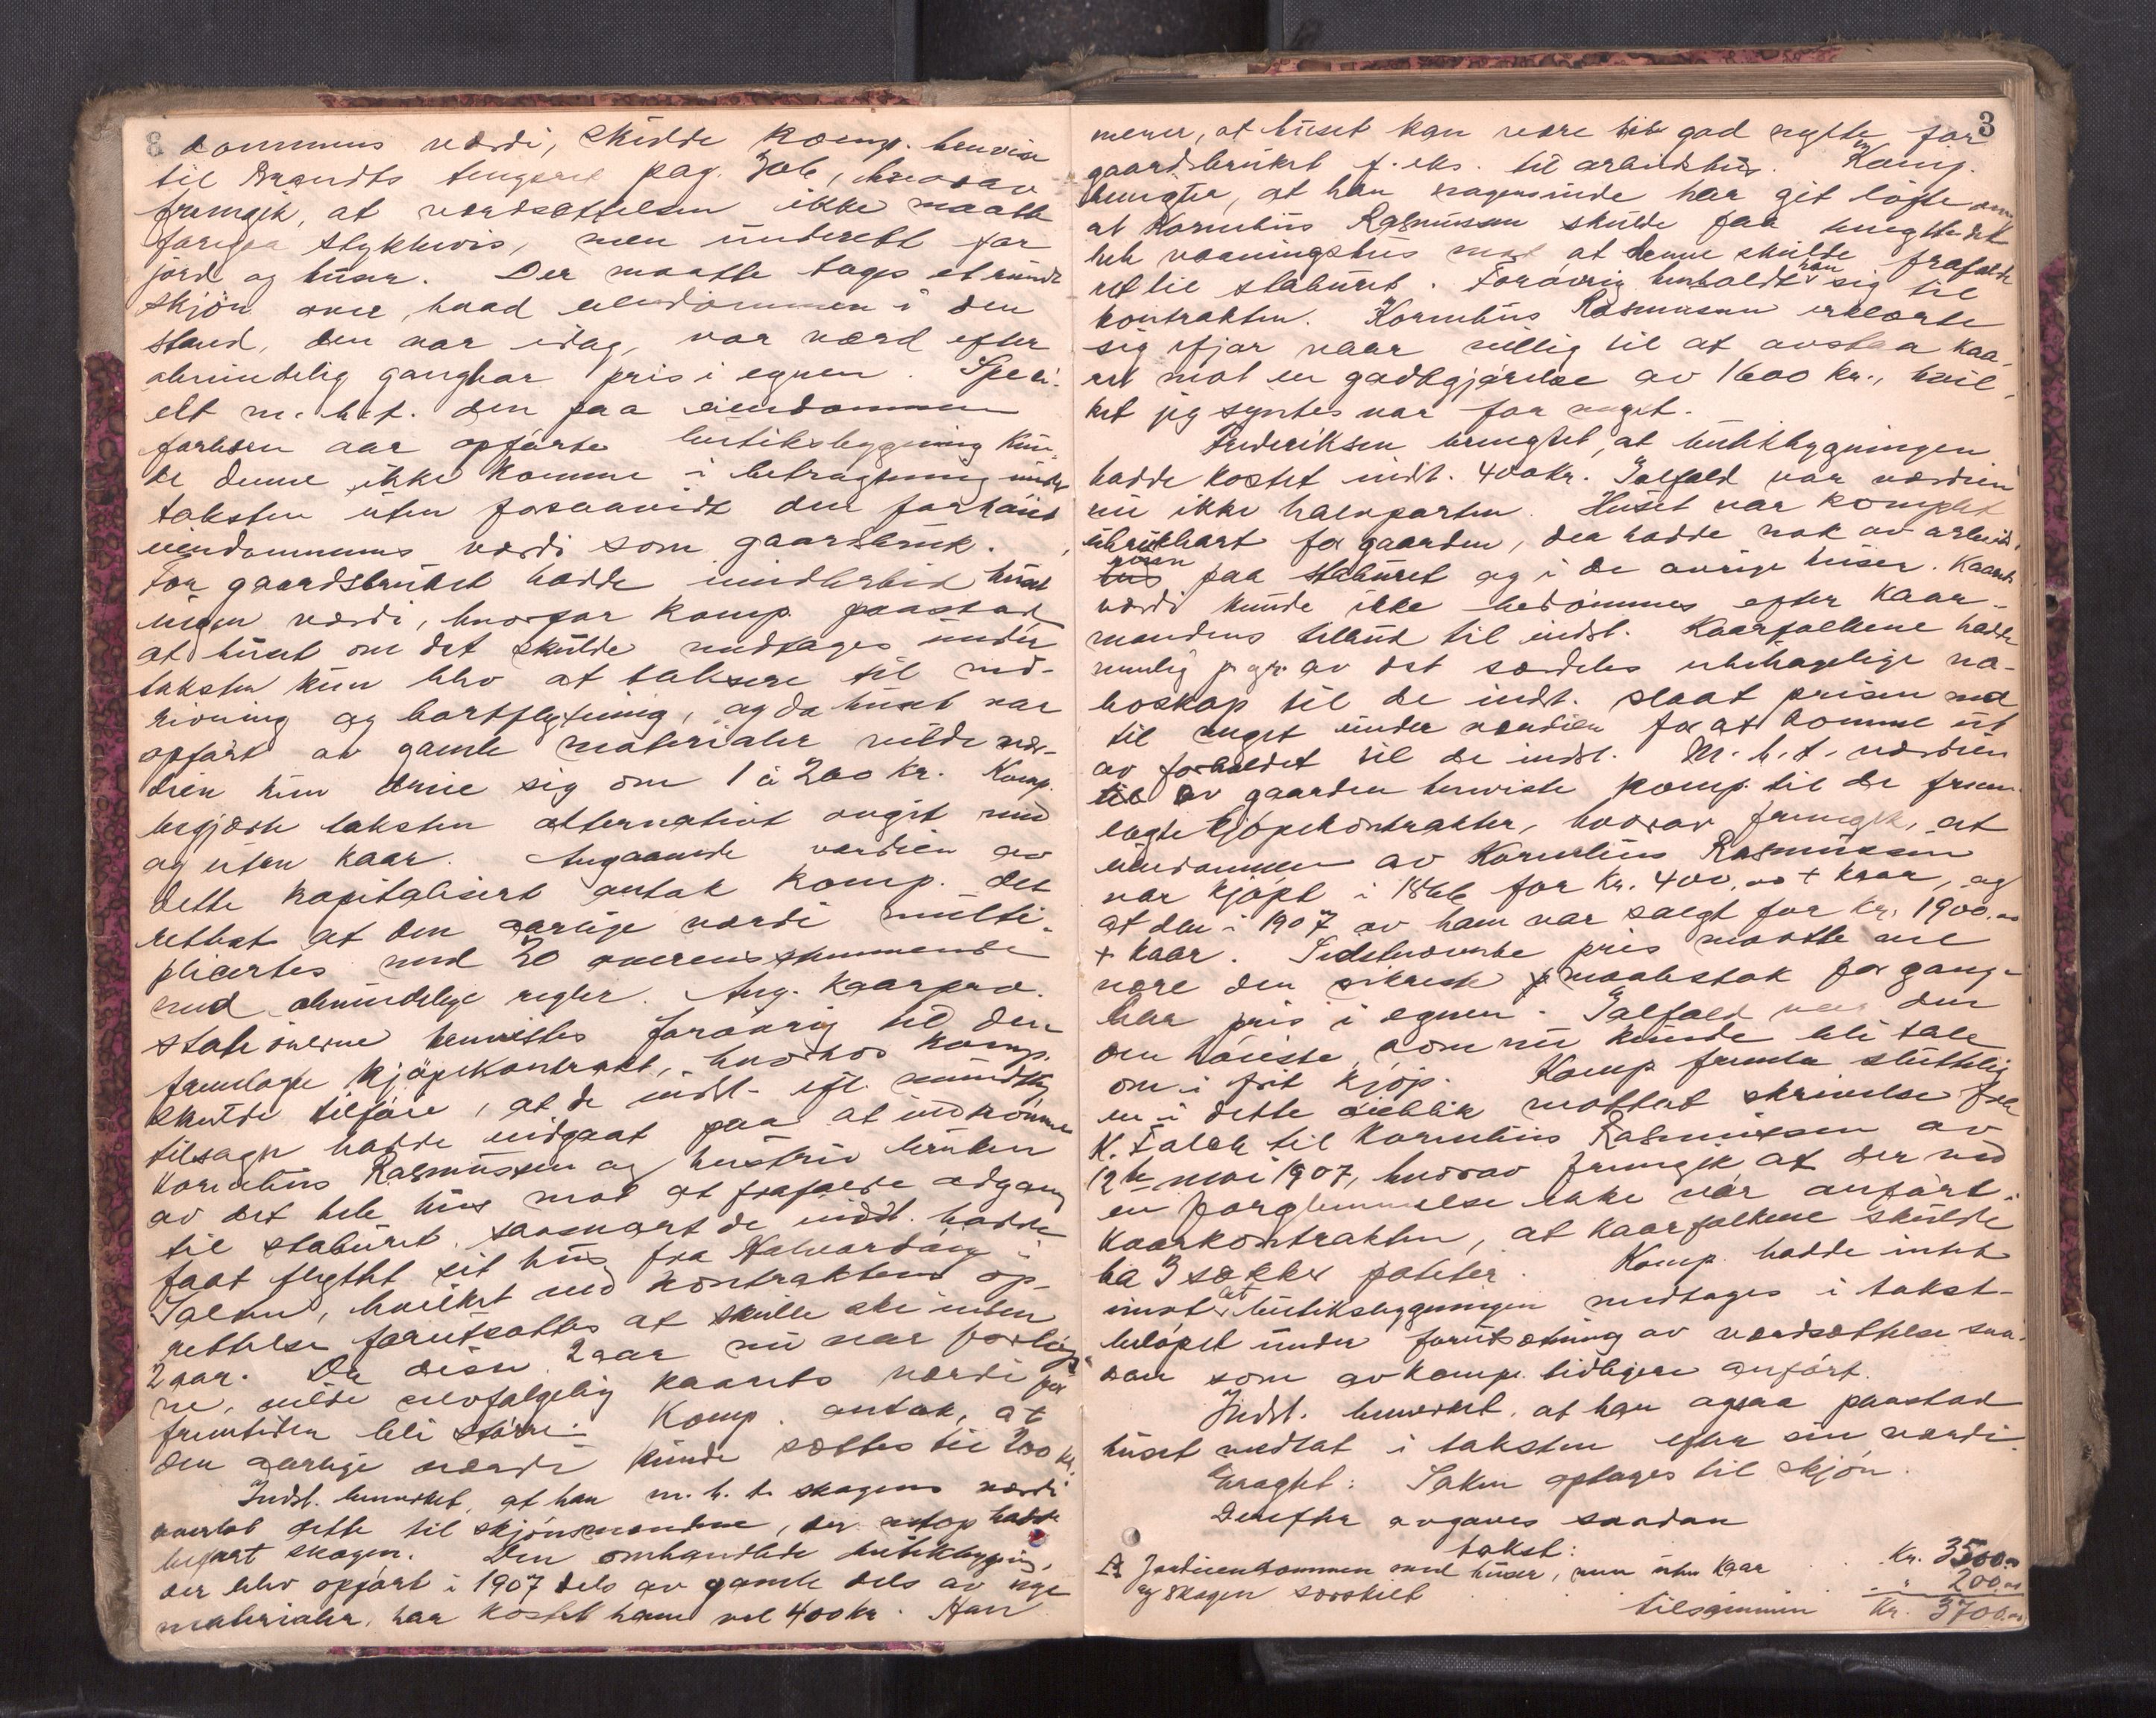 dommens værdi, skulde komp. henvise
til Brandts tingsret pag. 306, hvorav
fremgik, at værdsættelsen ikke maatte
foregaa stykkevis, men under ett for
jord og huser. Der maatte tages et rundt
skjön over, hvad eiendommen i den
stand, den var idag, var værd efter
almindelig gangbar pris i egnen. Speci-
elt m. h. t. den paa eiendommen
forleden aar opførte butiksbygning kun-
de denne ikke komme i betragtning under
taksten uten forsaavidt den forhöiet
eiendommens værdi som gaardsbruk.
For gaardsbruket hadde imidlertid huset
ingen værdi, hvorfor komp. paastod
at huset om det skulde medtages under
taksten kun blev at taksere til ned-
rivning og bortflytning, og da huset var
opført av gamle materialer vilde vær-
dien kun dreie sig om 1 à 200 kr. Komp.
begjærte taksten alternativt avgit med
og uten kaar. Angaaende værdien av
dette kapitalisert antok komp. det
rettest at den aarlige værdi multi-
plicertes med 20 overensstemmende
med almindelige regler. Ang. kaarpræ-
stationerne henvistes forøvrig til den
fremlagte kjöpekontrakt, hvorhos komp.
skulde tilföie, at de indst. eft. mundtlig
tilsagn hadde indgaat paa at indrömme
Kornelius Rasmussen og hustru bruken
av det hele hus mot at frafalde adgang
til staburet, saasnart de indst. hadde
faat flyttet sit hus fra Halvardöig i
Dalen, hvilket ved kontraktens op-
rettelse forutsattes at skulle ske inden
2 aar. Da disse 2 aar nu var forlöp-
ne, vilde selvfølgelig kaarets værdi for
fremtiden bli större. Komp. antok, at
den aarlige værdi kunde sættes til 200 kr.
Indst. bemerket, at han m. h. t. skogens værdi
overlot dette til skjönsmændene, der netop hadde
befart skogen. Den omhandlede butikbygning,
der blev opført i 1907 dels av gamle dels av nye
materialer, har kostet ham vel 400 kr. Han
3
mener, at huset kan være til god nytte for
gaardsbruket f. eks. til arbeidshus. Komp.
benegter, at han nogensinde har git löfte om
at Kornelius Rasmussen skulde faa benyttet det
hele vaaningshus mot at denne skulde frafalde
ret til staburet. Forövrig henholdt han sig til
kontrakten. Kornelius Rasmussen erklærte
sig ifjor vaar villig til at avstaa kaa-
ret mot en godtgjörelse av 1600 kr., hvil-
ket jeg syntes var for meget.
Frederiksen benegtet, at butikbygningen
hadde kostet indst. 400 kr. Ialfald var værdien
nu ikke halvparten. Huset var komplet
ubrukbart for gaarden, der hadde nok av arbeids-
rum paa staburet og i de øvrige huser. Kaarets
værdi kunde ikke bedömmes efter kaar-
mandens tilbud til indst. Kaarfolkene hadde
nemlig p. gr. av det særdeles ubehagelige na-
boskap til de indst. slaat prisen ned
til meget under værdien for at komme ut
av forholdet til de indst. M. h. t. værdien
av gaarden henviste komp. til de frem-
lagte kjöpekontrakter, hvorav fremgik, at
eiendommen av Kornelius Rasmussen
var kjöpt i 1866 for Kr. 400,00 + kaar, og
at den i 1907 av ham var solgt for Kr. 1900,00
+ kaar. Sidstnævnte pris maatte vel
være den sikreste maalestok for gang-
bar pris i egnen. Ialfald var den
den höieste, som nu kunde bli tale
om i frit kjöp. Komp. fremla sluttelig
en i dette öieblik mottat skrivelse fra
K. Falch til Kornelius Rasmussen av
12te mai 1907, hvorav fremgik at der ved
en forglemmelse ikke var anført i
kaarkontrakten, at kaarfolkene skulde
ha 3 sækker poteter. Komp. hadde intet
imot at butiksbygningen medtages i takst-
belöpet under forutsætning av værdsættelse saa-
dan som av komp. tidligere anført.
Indst. bemerket, at han ogsaa paastod
huset medtat i taksten efter sin værdi.
Eragtet: Saken optages til skjön.
Derefter avgaves saadan
takst:
A Jordeiendommen med huser, men uten kaar . . Kr. 3500.00
og skogen særskilt . . . . " 200.00
tilsammen Kr. 3700.00